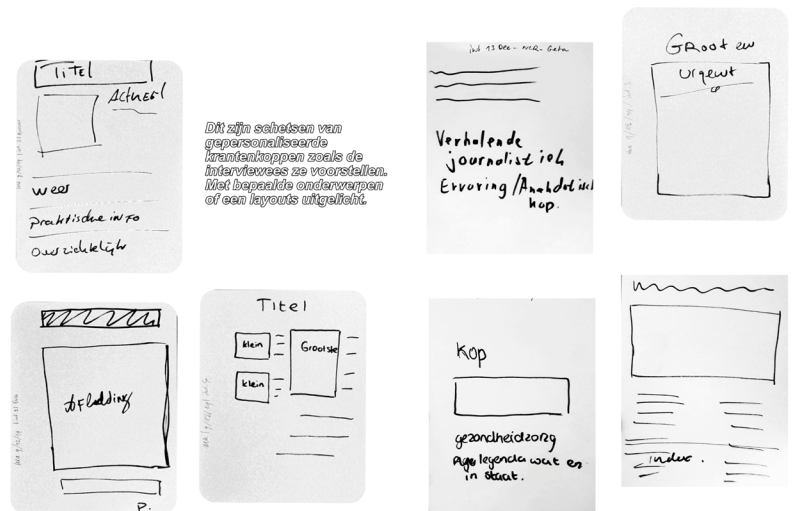 Titel
Actueel
weer
praktische info
Overzichtelijk
Dit zijn schetsen van
gepersonaliseerde
krantenkoppen zoals de
interviewees ze voorstellen.
Met bepaalde onderwerpen
of een layouts uitgelicht.
int 13 Dec - NCR-
Verhalende
journalistiek
Ervaring/Anekdotisch
kop.
Groot en
urgent
Afbeelding
P.
Titel
klein
Grootste
klein
Kop
gezondheidzorg
legenda wat er
in staat.
index.